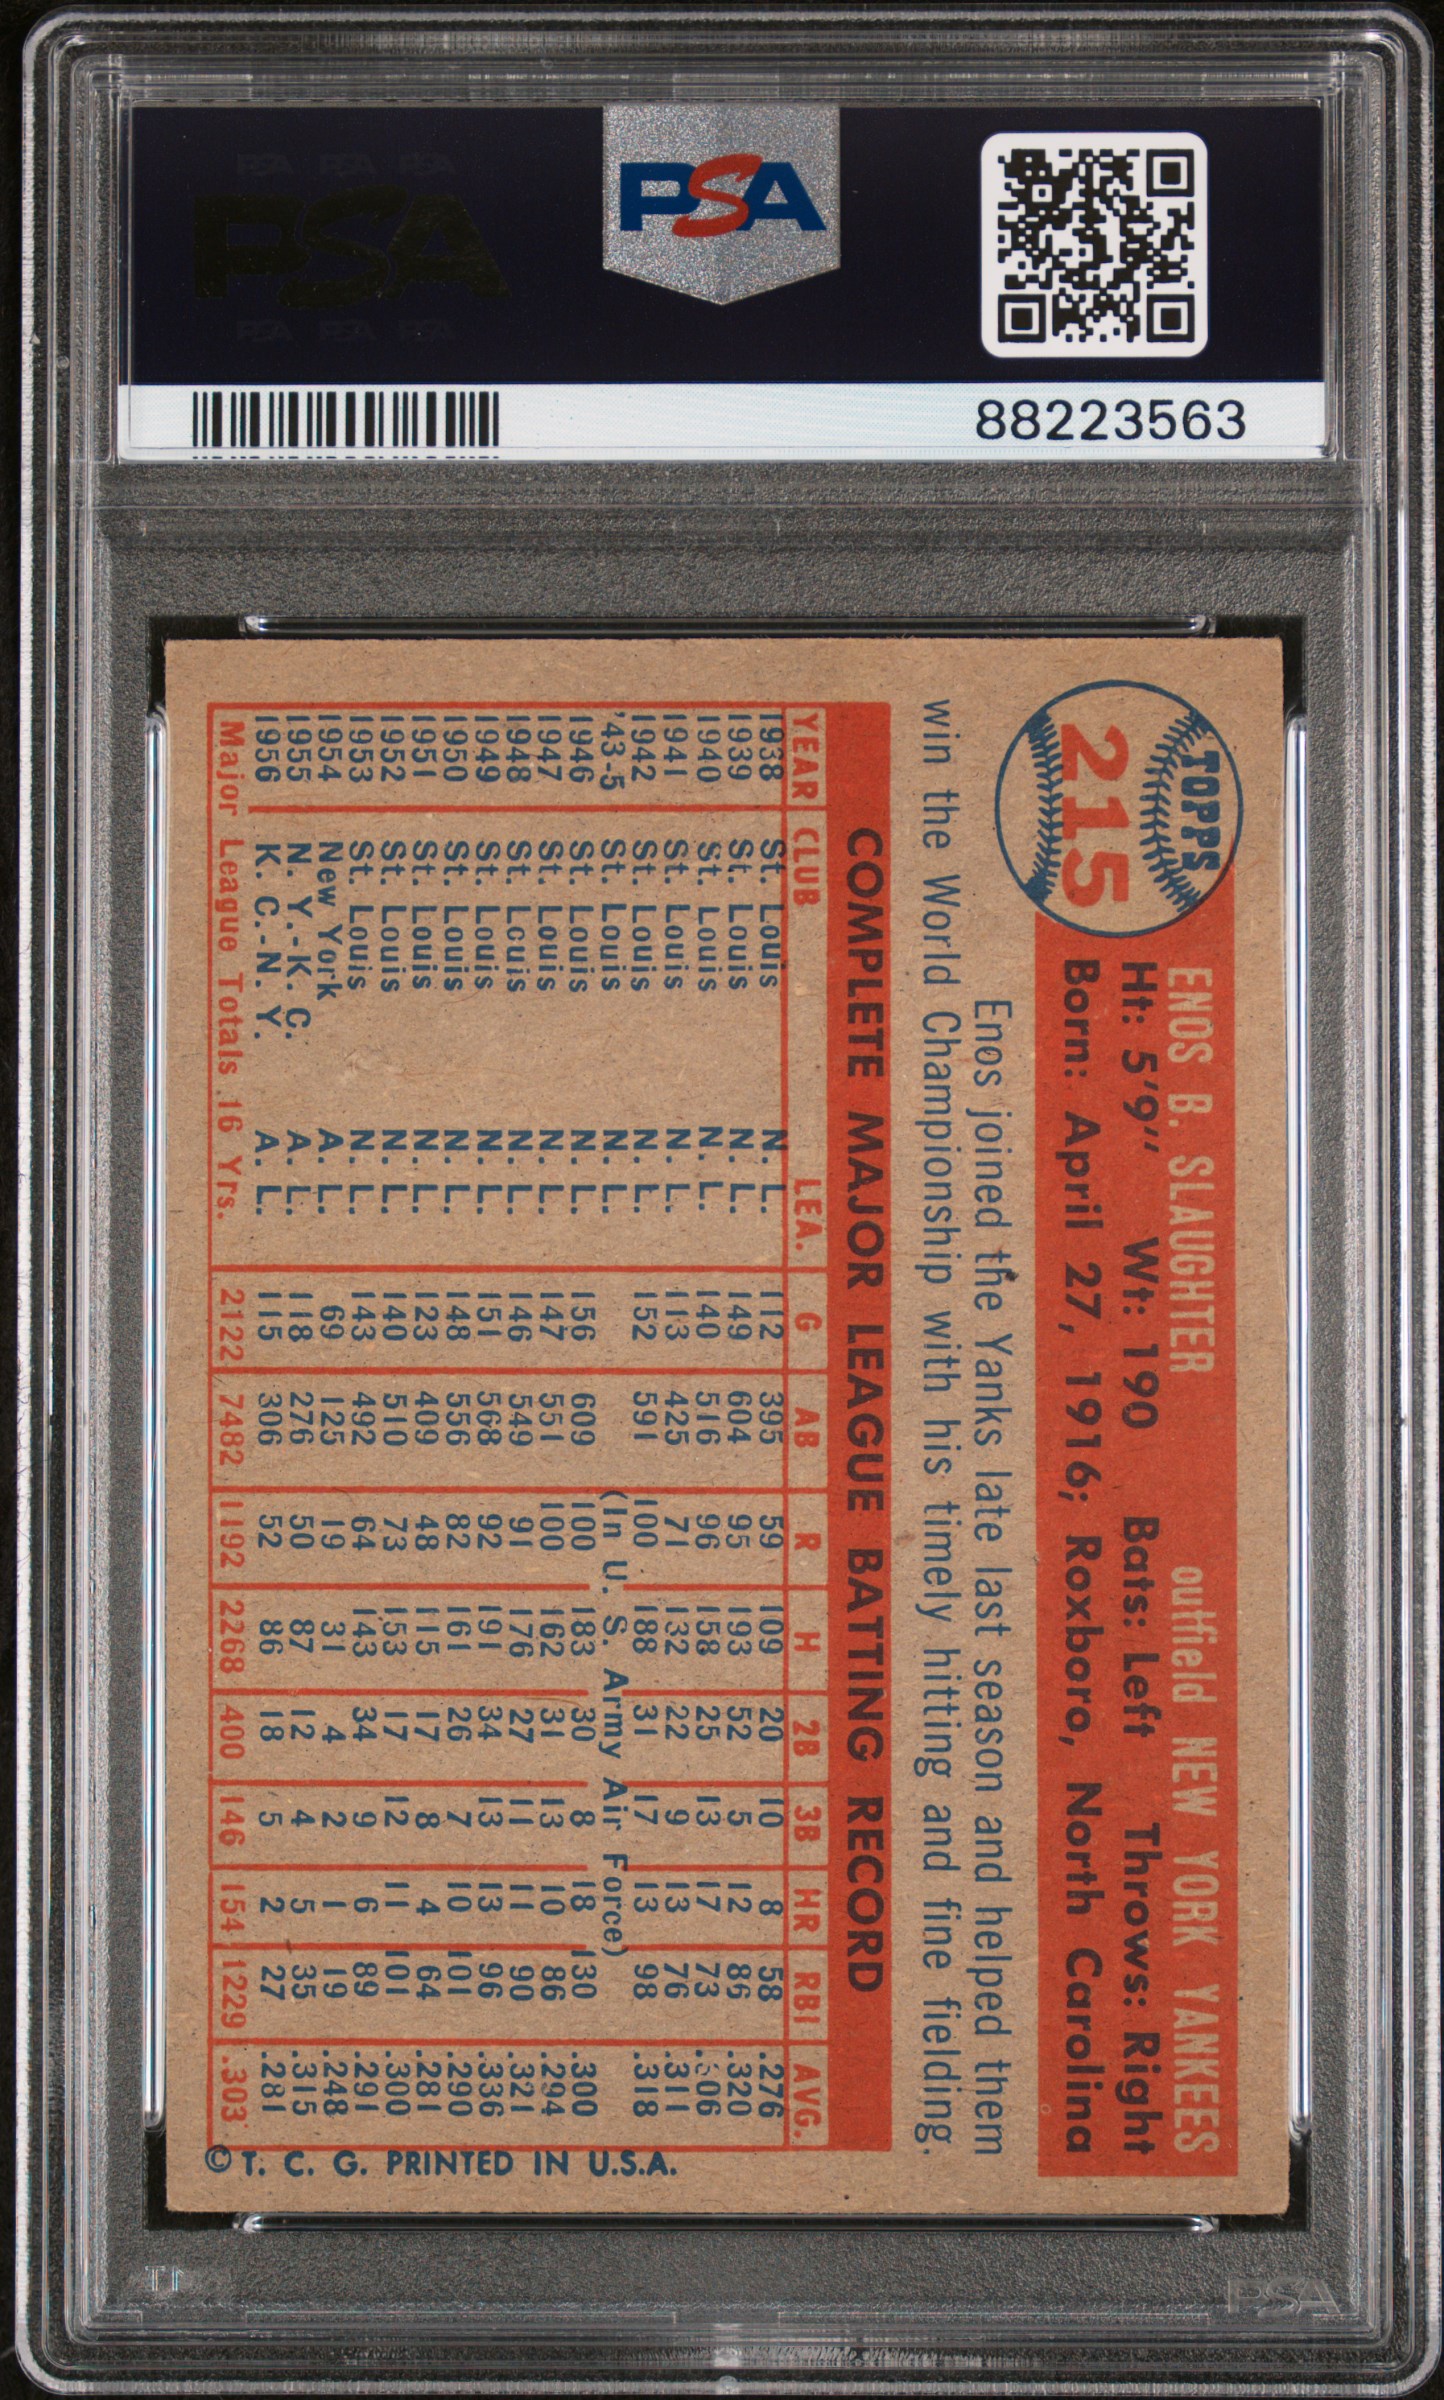 PSA PSA PSA
PSA
PSA PSA PSA
PSA
88223563
TOPPS
215
ENOS B. SLAUGHTER outfield NEW YORK YANKEES
Ht: 5'9" Wt: 190 Bats: Left Throws: Right
Born: April 27, 1916; Roxboro, North Carolina
Enos joined the Yanks late last season and helped them
win the World Championship with his timely hitting and fine fielding.
COMPLETE MAJOR LEAGUE BATTING RECORD
YEAR CLUB LEA. G AB R H 2B 3B HR RBI AVG.
1938 St. Louis N. L. 112 395 59 109 20 10 8 58 .276
1939 St. Louis N. L. 149 604 95 193 52 5 12 86 .320
1940 St. Louis N. L. 140 516 96 158 25 13 17 73 .306
1941 St. Louis N. L. 113 425 71 132 22 9 13 76 .311
1942 St. Louis N. L. 152 591 100 188 31 17 13 98 .318
'43-5 St. Louis N. L. (In U. S. Army Air Force)
1946 St. Louis N. L. 156 609 100 183 30 8 18 130 .300
1947 St. Louis N. L. 147 551 100 162 31 13 10 86 .294
1948 St. Louis N. L. 146 549 91 176 27 11 11 90 .321
1949 St. Louis N. L. 151 568 92 191 34 13 13 96 .336
1950 St. Louis N. L. 148 556 82 161 26 7 10 101 .290
1951 St. Louis N. L. 123 409 48 115 17 8 4 64 .281
1952 St. Louis N. L. 140 510 73 153 17 12 11 101 .300
1953 St. Louis N. L. 143 492 64 143 34 9 6 89 .291
1954 New York A. L. 69 125 19 31 4 2 1 19 .248
1955 N. Y.-K. C. A. L. 118 276 50 87 12 4 5 35 .315
1956 K. C.-N. Y. A. L. 115 306 52 86 18 5 2 27 .281
Major League Totals 16 Yrs. 2122 7482 1192 2268 400 146 154 1229 .303
© T. C. G. PRINTED IN U.S.A.
PSA